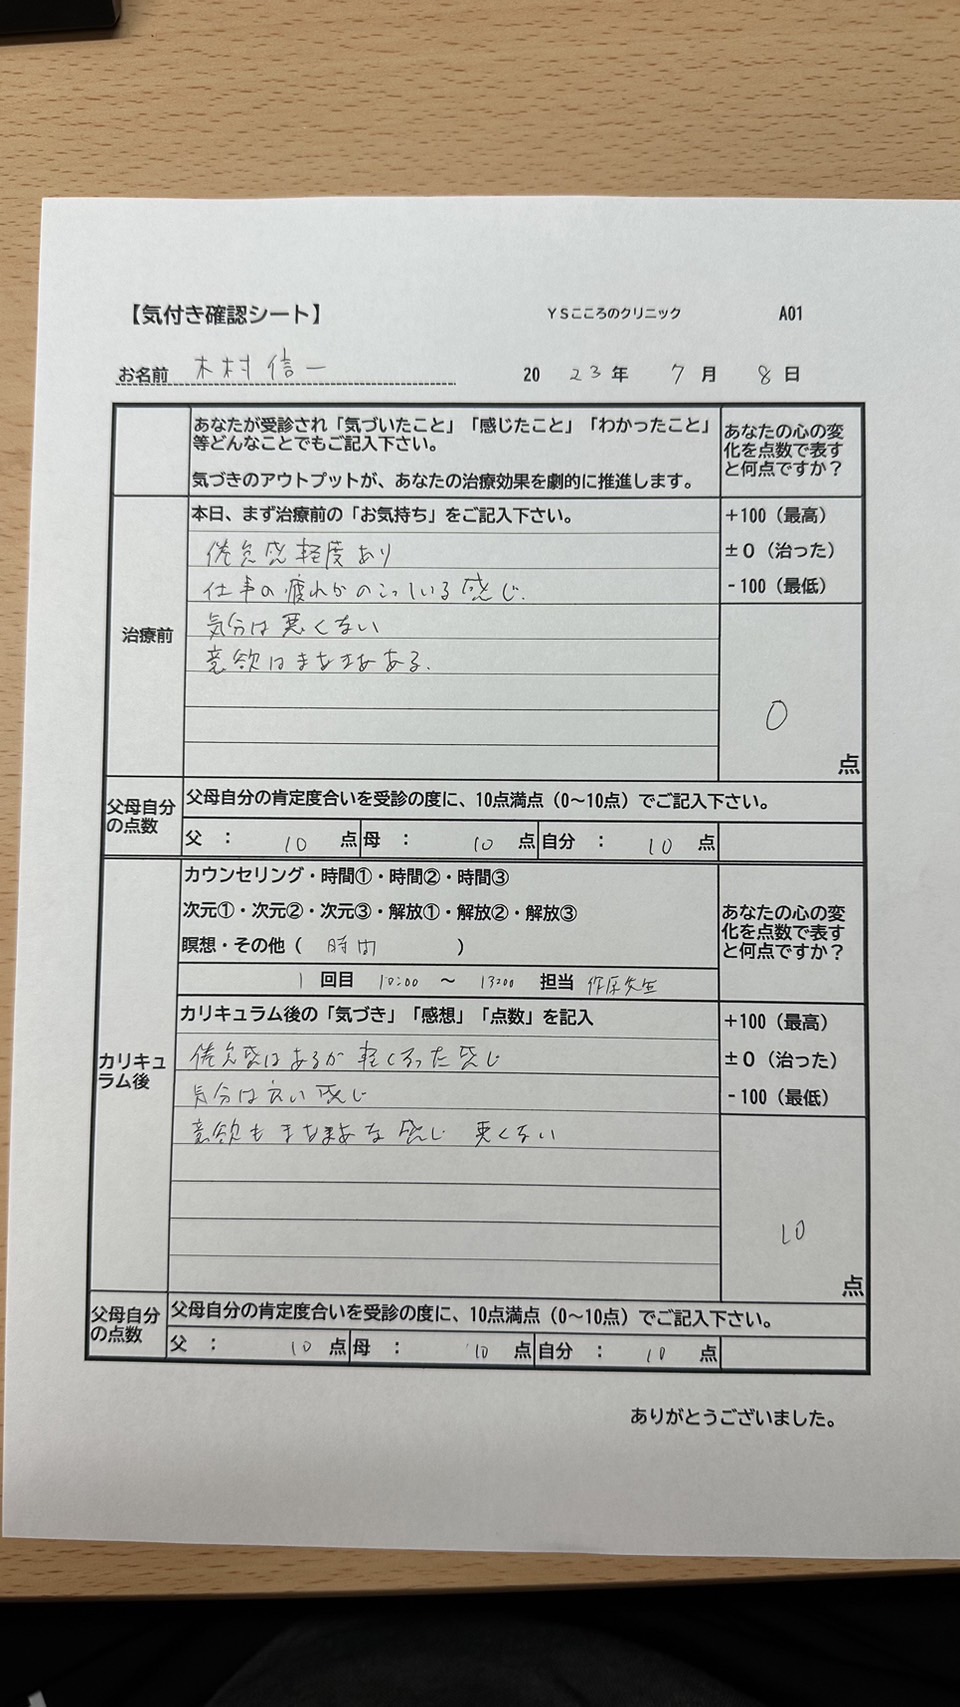 【気付き確認シート】 YSこころのクリニック A01
お名前 木村信一 2023年 7月 8日
あなたが受診され「気づいたこと」「感じたこと」「わかったこと」
等どんなことでもご記入下さい。
気づきのアウトプットが、あなたの治療効果を劇的に推進します。
あなたの心の変
化を点数で表す
と何点ですか？
治療前
本日、まず治療前の「お気持ち」をご記入下さい。
倦怠感軽度あり
仕事の疲れがのこっている感じ.
気分は悪くない
意欲はまあまあある.
+100（最高）
±0（治った）
-100（最低）
0
点
父母自分
の点数
父母自分の肯定度合いを受診の度に、10点満点（0～10点）でご記入下さい。
父 ： 10 点 母 ： 10 点 自分 ： 10 点
カリキュ
ラム後
カウンセリング・時間①・時間②・時間③
次元①・次元②・次元③・解放①・解放②・解放③
瞑想・その他（ 時間 ）
1 回目 10:00 ～ 13:00 担当 作原先生
あなたの心の変
化を点数で表す
と何点ですか？
カリキュラム後の「気づき」「感想」「点数」を記入
倦怠感はあるが 軽くなった感じ
気分は良い感じ
意欲もまあまあな感じ 悪くない
+100（最高）
±0（治った）
-100（最低）
10
点
父母自分
の点数
父母自分の肯定度合いを受診の度に、10点満点（0～10点）でご記入下さい。
父 ： 10 点 母 ： 10 点 自分 ： 10 点
ありがとうございました。